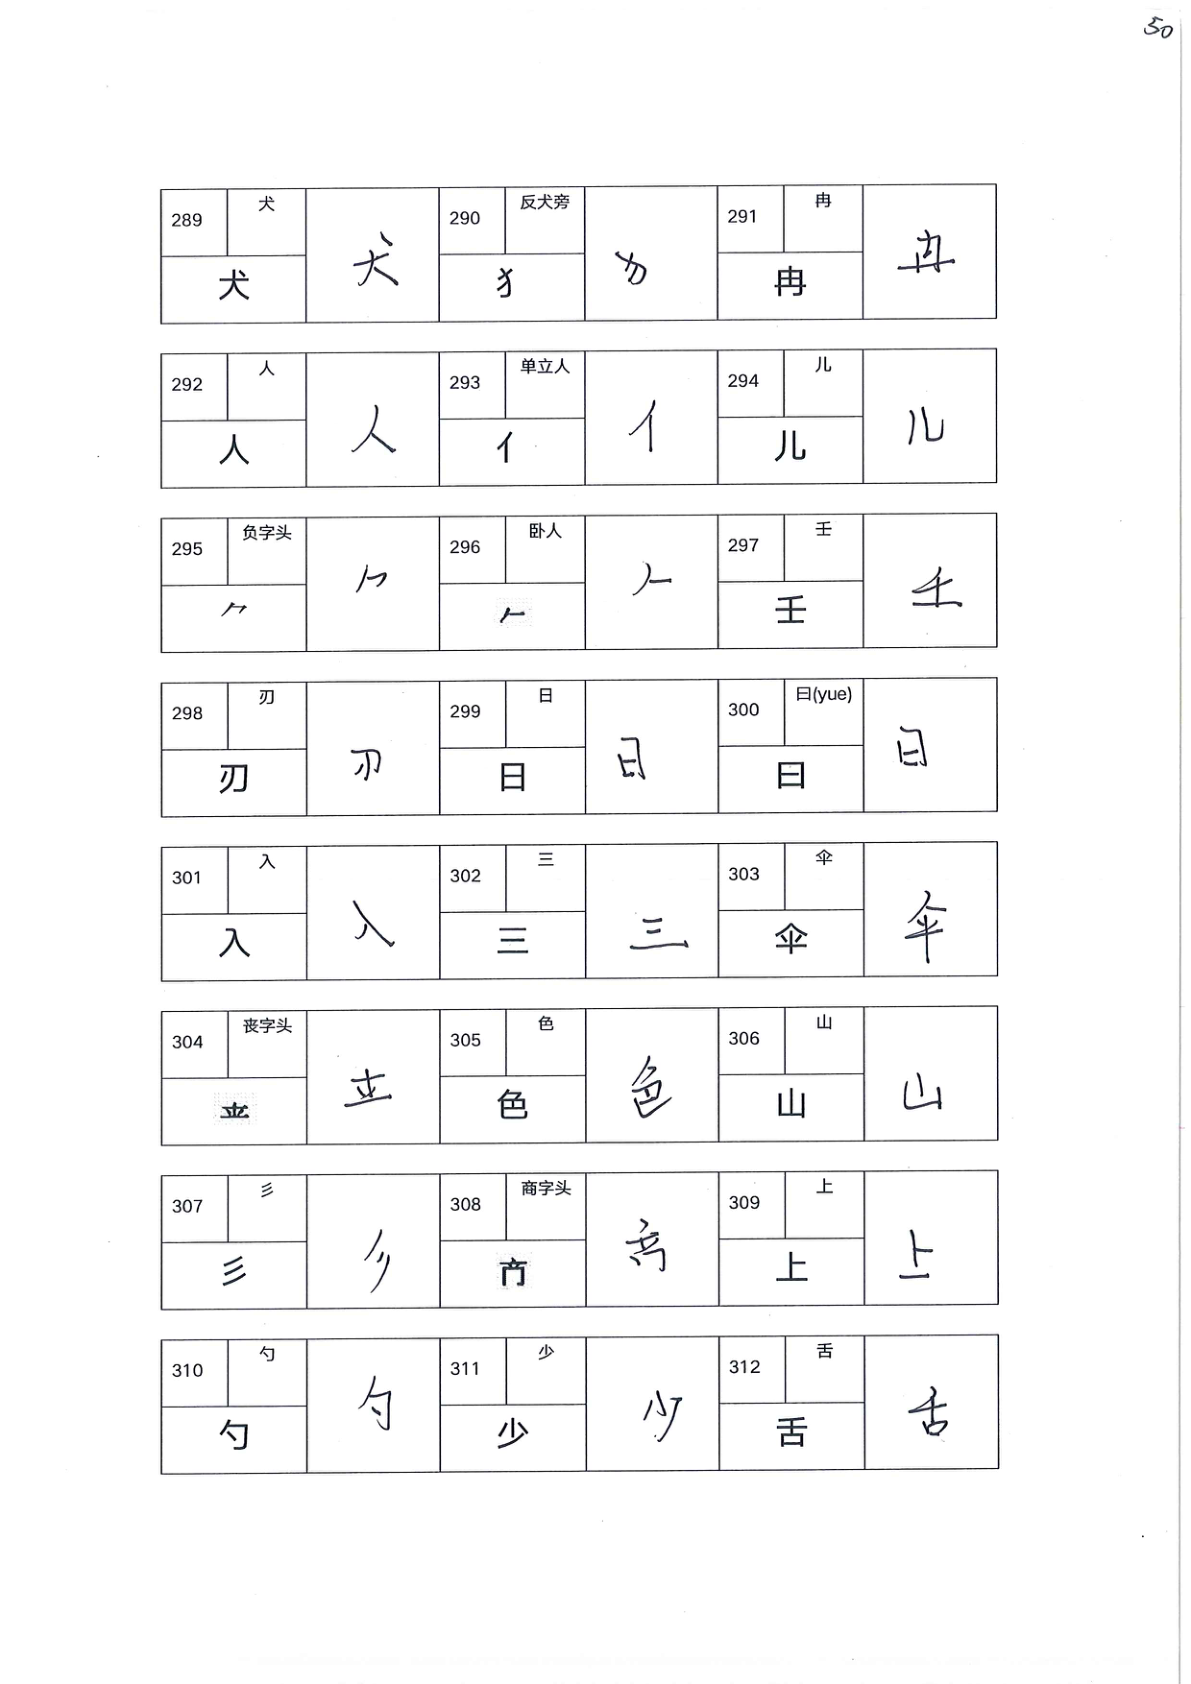 50
289 犬 犬 犬 290 反犬旁 犭 犭 291 冉 冉 冉
292 人 人 人 293 单立人 亻 亻 294 儿 儿 儿
295 负字头 ⺈ ⺈ 296 卧人 𠂉 𠂉 297 壬 壬 壬
298 刃 刃 刃 299 日 日 日 300 曰(yue) 曰 曰
301 入 入 入 302 三 三 三 303 伞 伞 伞
304 丧字头 305 色 色 色 306 山 山 山
307 彡 彡 彡 308 商字头 309 上 上 上
310 勺 勺 勺 311 少 少 少 312 舌 舌 舌